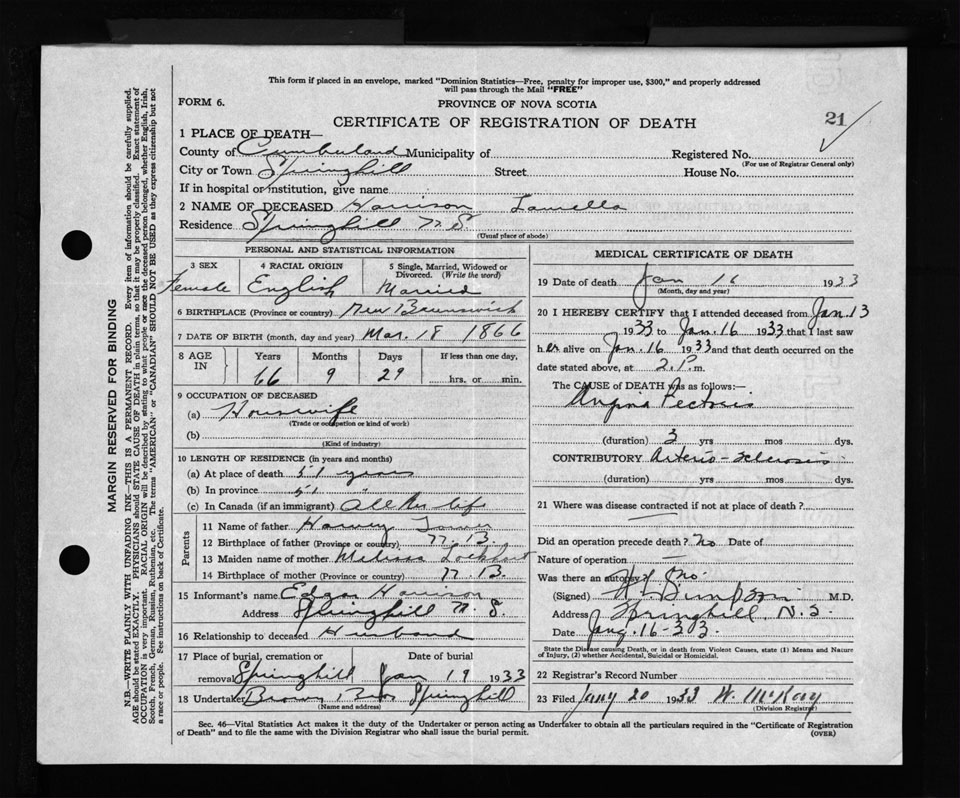 This form if placed in an envelope, marked "Dominion Statistics—Free, penalty for improper use, $300," and properly addressed
will pass through the Mail "FREE"
FORM 6.
PROVINCE OF NOVA SCOTIA
21
CERTIFICATE OF REGISTRATION OF DEATH
1 PLACE OF DEATH—
County of Cumberland Municipality of Registered No.
(For use of Registrar General only)
City or Town Springhill Street House No.
If in hospital or institution, give name
2 NAME OF DECEASED Harrison Louella
Residence Springhill N.S.
(Usual place of abode)
PERSONAL AND STATISTICAL INFORMATION
3 SEX 4 RACIAL ORIGIN 5 Single, Married, Widowed or
Divorced. (Write the word)
Female English Married
6 BIRTHPLACE (Province or country) New Brunswick
7 DATE OF BIRTH (month, day and year) Mar. 18 1866
8 AGE IN Years Months Days If less than one day,
66 9 29 hrs. or min.
9 OCCUPATION OF DECEASED
(a) Housewife
(Trade or occupation or kind of work)
(b)
(Kind of industry)
10 LENGTH OF RESIDENCE (in years and months)
(a) At place of death 51 years
(b) In province 51 "
(c) In Canada (if an immigrant) All her life
Parents
11 Name of father Harvey
12 Birthplace of father (Province or country) N.B.
13 Maiden name of mother Melissa Lockhart
14 Birthplace of mother (Province or country) N.B.
15 Informant's name Edgar Harrison
Address Springhill N.S.
16 Relationship to deceased Husband
17 Place of burial, cremation or Date of burial
removal Springhill Jan 19 1933
18 Undertaker Brown Bros Springhill
(Name and address)
MEDICAL CERTIFICATE OF DEATH
19 Date of death Jan 16 1933
(Month, day and year)
20 I HEREBY CERTIFY that I attended deceased from Jan. 13
1933 to Jan. 16 1933 that I last saw
her alive on Jan. 16 1933 and that death occurred on the
date stated above, at 2.P.m.
The CAUSE OF DEATH was as follows:—
Angina Pectoris
(duration) 3 yrs mos dys.
CONTRIBUTORY Arterio-sclerosis
(duration) yrs mos dys.
21 Where was disease contracted if not at place of death?
Did an operation precede death? No Date of
Nature of operation —
Was there an autopsy? No
(Signed) M.D.
Address Springhill, N.S.
Date Jany.16-33.
State the Disease causing Death, or in death from Violent Causes, state (1) Means and Nature
of Injury, (2) whether Accidental, Suicidal or Homicidal.
22 Registrar's Record Number
23 Filed Jany 20 1933 W. McKay
(Division Registrar)
Sec. 46—Vital Statistics Act makes it the duty of the Undertaker or person acting as Undertaker to obtain all the particulars required in the "Certificate of Registration
of Death" and to file the same with the Division Registrar who shall issue the burial permit.
(OVER)
MARGIN RESERVED FOR BINDING
N.B.—WRITE PLAINLY WITH UNFADING INK—THIS IS A PERMANENT RECORD. Every item of information should be carefully supplied.
AGE should be stated EXACTLY. PHYSICIANS should STATE CAUSE OF DEATH in plain terms, so that it may be properly classified. Exact statement of
OCCUPATION is very important. RACIAL ORIGIN will be described by stating to what people or race the deceased person belonged, whether English, Irish,
Scotch, French, German, Russian, Ruthenian, etc. The terms "AMERICAN" or "CANADIAN" SHOULD NOT BE USED as they express citizenship but not
a race or people. See instructions on back of Certificate.